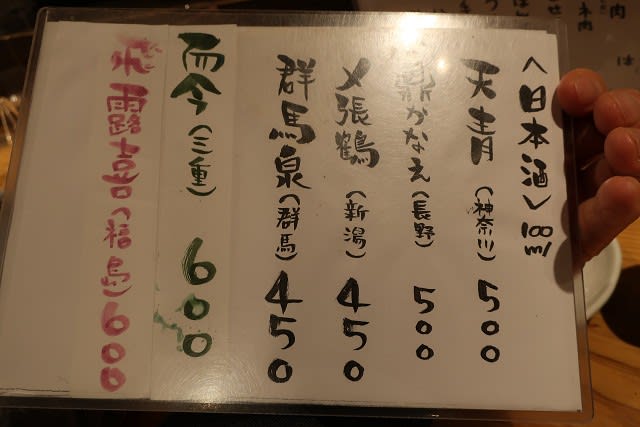 <日本酒> 100ml
天青（神奈川）500
鼎かなえ（長野）500
〆張鶴（新潟）450
群馬泉（群馬）450
而今（三重）600
飛露喜（福島）600